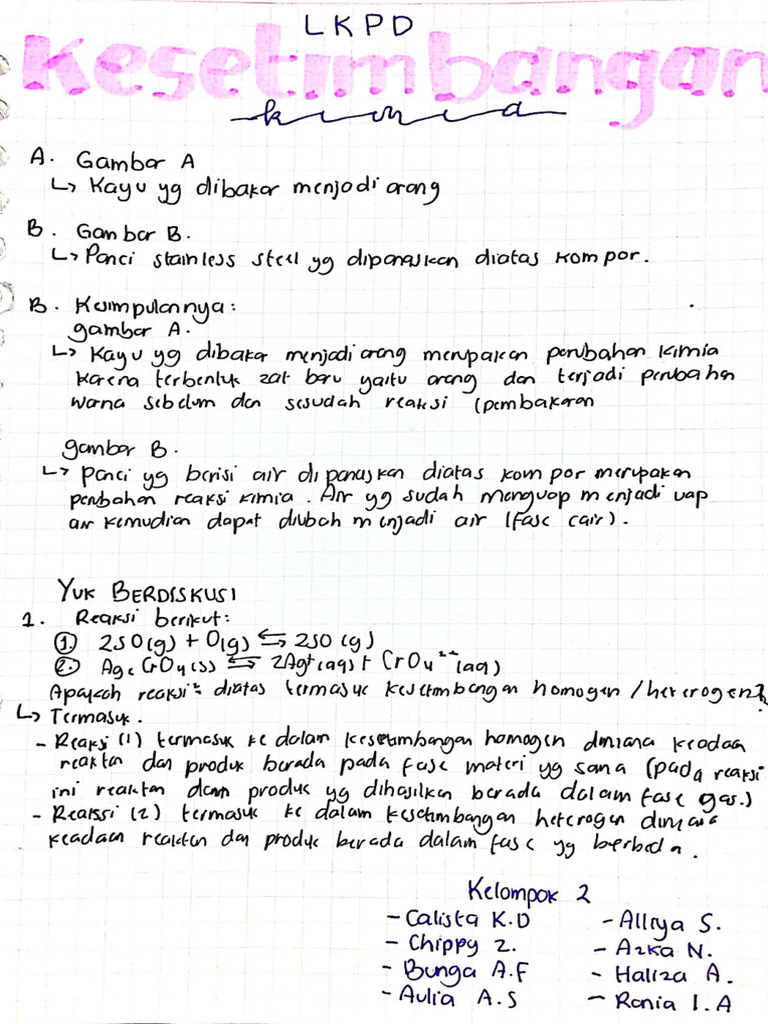 LKPD
Kesetimbangan
kimia
A. Gambar A
↳ Kayu yg dibakar menjadi arang
B. Gambar B.
↳ Panci stainless steel yg dipanaskan diatas kompor.
B. Kesimpulannya:
gambar A.
↳ Kayu yg dibakar menjadi arang merupakan perubahan kimia
karena terbentuk zat baru yaitu arang dan terjadi perubahan
warna sebelum dan sesudah reaksi (pembakaran
gambar B.
↳ Panci yg berisi air dipanaskan diatas kompor merupakan
perubahan reaksi kimia. Air yg sudah menguap menjadi uap
air kemudian dapat diubah menjadi air (fase cair).
YUK BERDISKUSI
1. Reaksi berikut:
① 2SO(g) + O(g) ⇆ 2SO (g)
② Ag₂ CrO4(s) ⇆ 2Ag+(aq) + CrO4²⁻(aq)
Apakah reaksi² diatas termasuk kesetimbangan homogen/heterogen?
↳ Termasuk.
- Reaksi (1) termasuk ke dalam kesetimbangan homogen dimana keadaan
reaktan dan produk berada pada fase materi yg sama (pada reaksi
ini reaktan dan produk yg dihasilkan berada dalam fase gas.)
- Reakssi (2) termasuk ke dalam kesetimbangan heterogen dimana
keadaan reaktan dan produk berada dalam fase yg berbeda.
Kelompok 2
- Calista K.D
- Chippy Z.
- Bunga A.F
- Aulia A.S
- Allsya S.
- Azka N.
- Haliza A.
- Rania I.A